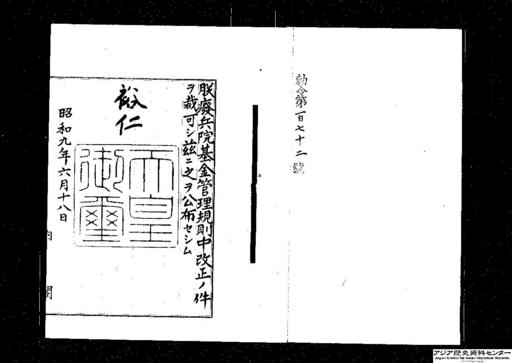 勅令第百七十二號
朕廢兵院基金管理規則中改正ノ件
ヲ裁可シ茲ニ之ヲ公布セシム
裕仁
天皇御璽
昭和九年六月十八日
内閣
アジア歴史資料センター
Japan Center for Asian Historical Records